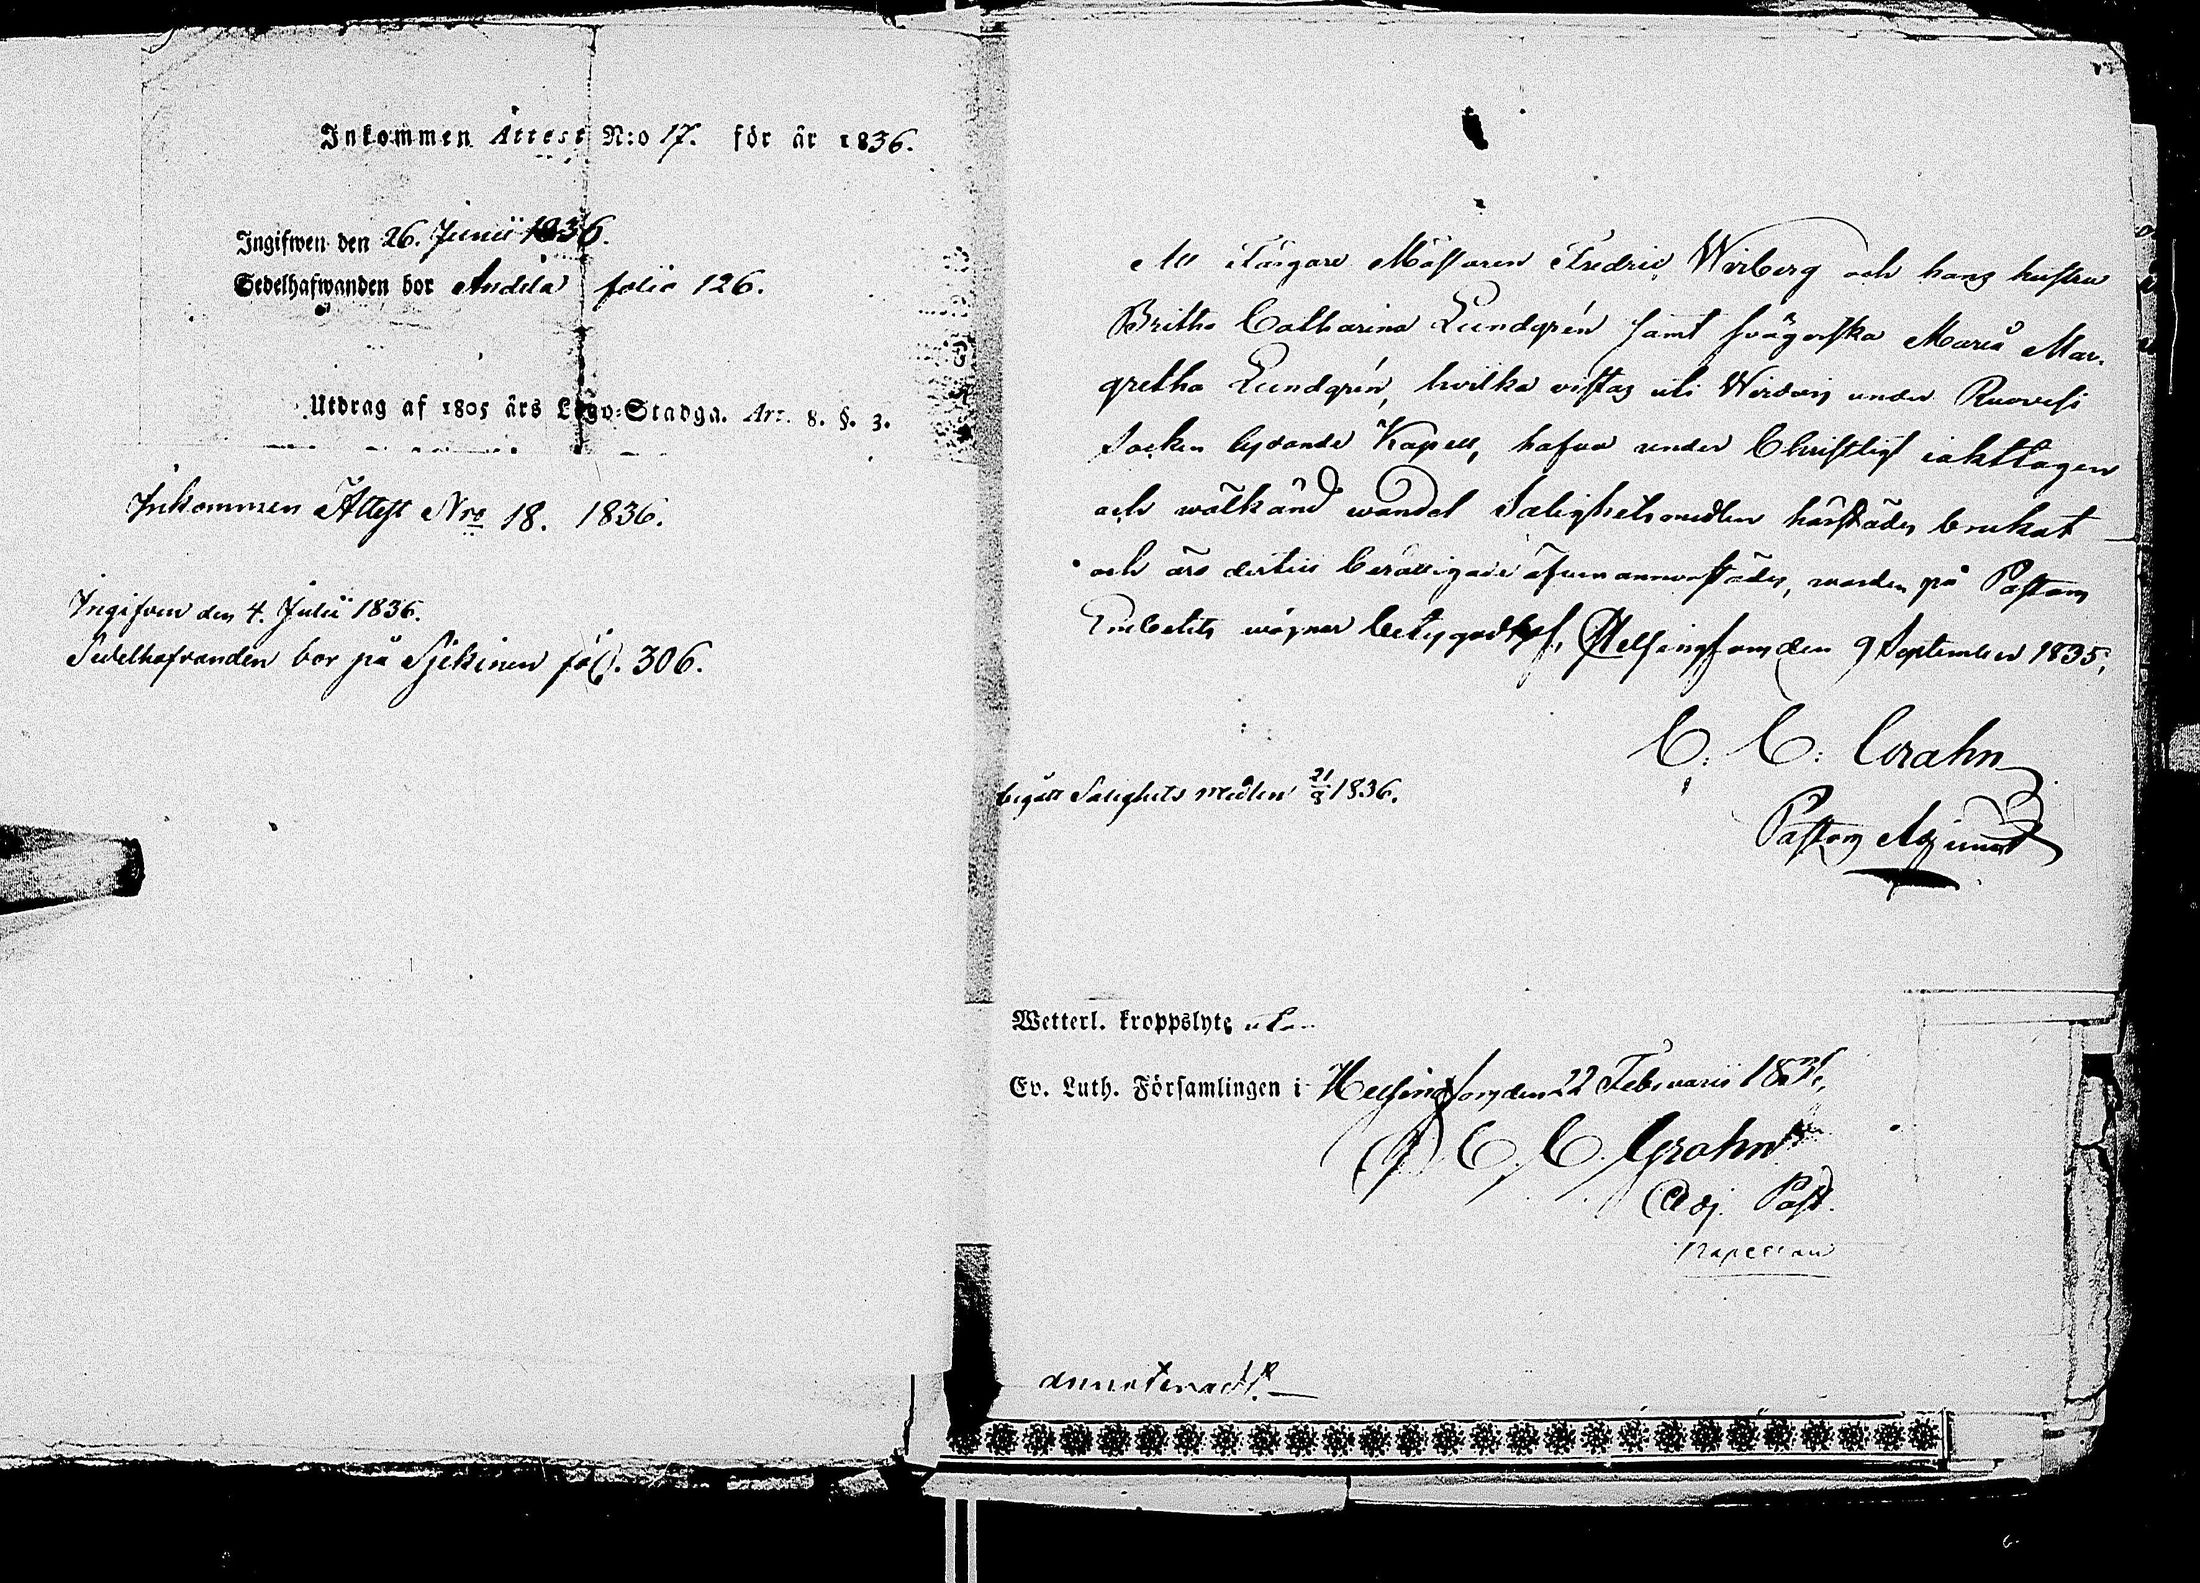 Inkommen Attest N:o 17. för år 1836.
Ingifwen den 26. Junii 1836.
Sedelhafwanden bor Anddla folio 126.
Utdrag af 1805 års Lego-Stadga. Art. 8. §. 3.
Inkommen Attest Nro 18. 1836.
Ingifven den 4. Julii 1836.
Sedelhafvanden bor på Sjekinen fol. 306.
Att Färgare Mästaren Fredric Wirberg och hans hustru
Britha Catharina Lundgrén samt svägerska Maria Mar-
gretha Lundgrén, hvilka vistas uti Wirdois under Ruovesi
Socken lydande Kapell, hafva under Christligt iakttagen
och wälkänd wandel Salighetsmedlen härstädes brukat
och äro dertill berättigade äfven annorstädes, warder på Pastors
Embetets wägnar betygadt, Helsingfors den 9 September 1835,
C. C. Grahn
Pastors Adjunct
begått Salighets medlen 21/8 1836.
Wetterl. kroppslyte utan
Ev. Luth. Församlingen i Helsingfors den 22 Februarii 1836,
C. C. Grahn
Adj. Past.
Kapellan